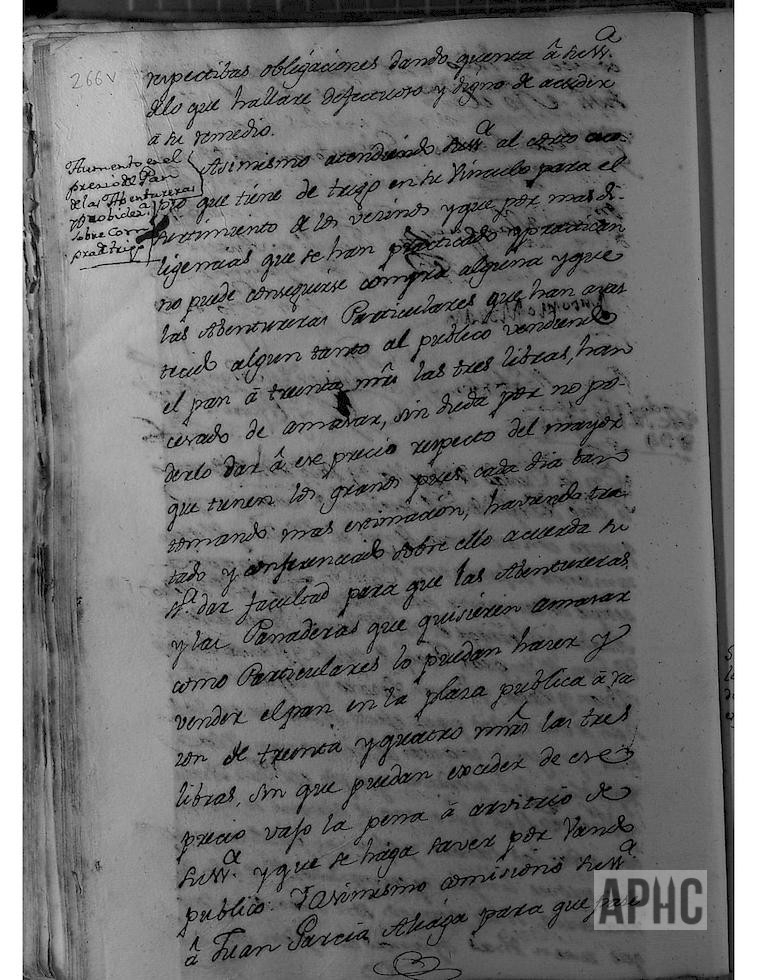 266v
respectibas obligaciones dando quenta â su Sª
delo que hallare defectuoso y digno de acudir
a su remedio.
Aumento en el
precio del Pan
de las Abentureras
y Probidenª
sobre Com
pra de trigo
Asimismo atendiendo su Sª al corto aco
pio que tiene de trigo en su Vinculo para el
surtimiento de los vecinos y que por mas di-
ligencias que se han practicado y practican
no puede conseguirse compra alguna y que
las Abentureras Particulares que han avas
tecido algun tanto al publico vendiendo
el pan â treinta mrs las tres libras, han
cesado de amasar, sin duda por no po-
derlo dar â ese precio respecto del mayor
que tienen los granos pues cada dia ban
tomando mas estimacion, haviendo tra
tado y conferenciado sobre ello acuerda su
Sª dar facultad para que las Abentureras
y las Panaderas que quisieren amasar
como Particulares lo puedan hacer y
vender el pan en la plaza publica â ra
zon de treinta y quatro mrs las tres
libras, sin que puedan exceder de ese
precio vajo la pena â arvitrio de
su Sª y que se haga saver por Vando
publico. Y asimismo comisionó su Sª
â Juan Garcia Aliaga para que pase
APHC